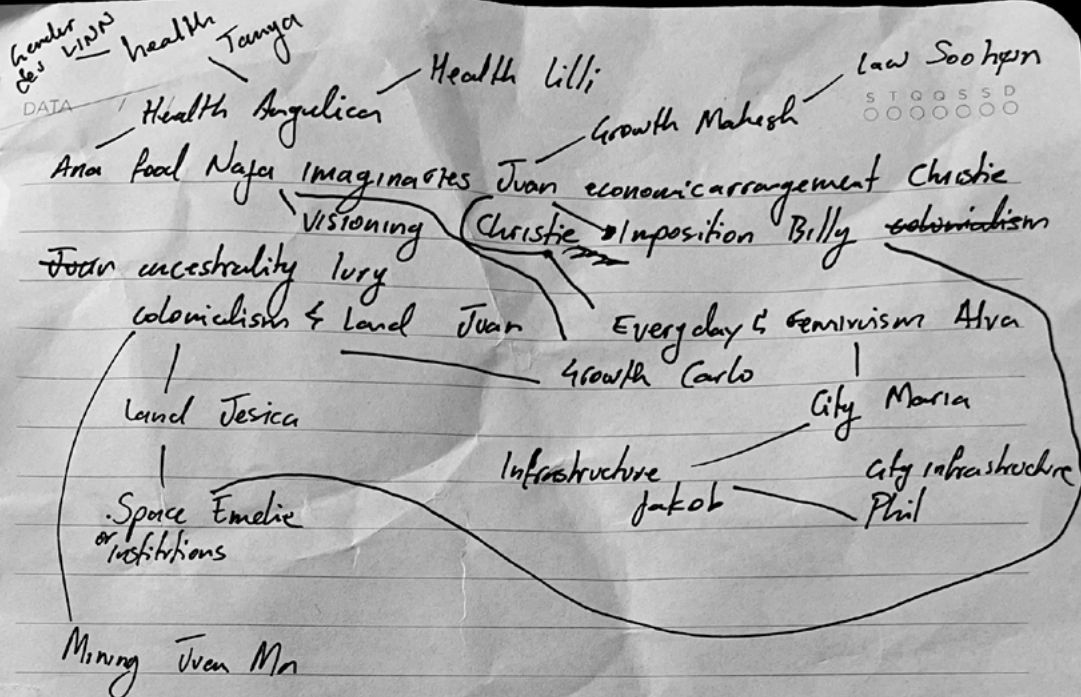 Gender
des LINN health Tanya
Law Soohyun
Health Lilli
DATA / /
S T Q Q S S D
Health Angelica
Growth Mahesh
Ana food Naja imaginaries Juan economic arrangement Christie
Visioning (Christie Imposition Billy colonialism
Juan ancestrality Iury
colonialism & Land Juan Everyday & Feminism Alva
Growth Carlo
Land Jesica City Maria
Infrastructure City infrastructure
Space Emelie Jakob Phil
or institutions
Mining Juan Ma